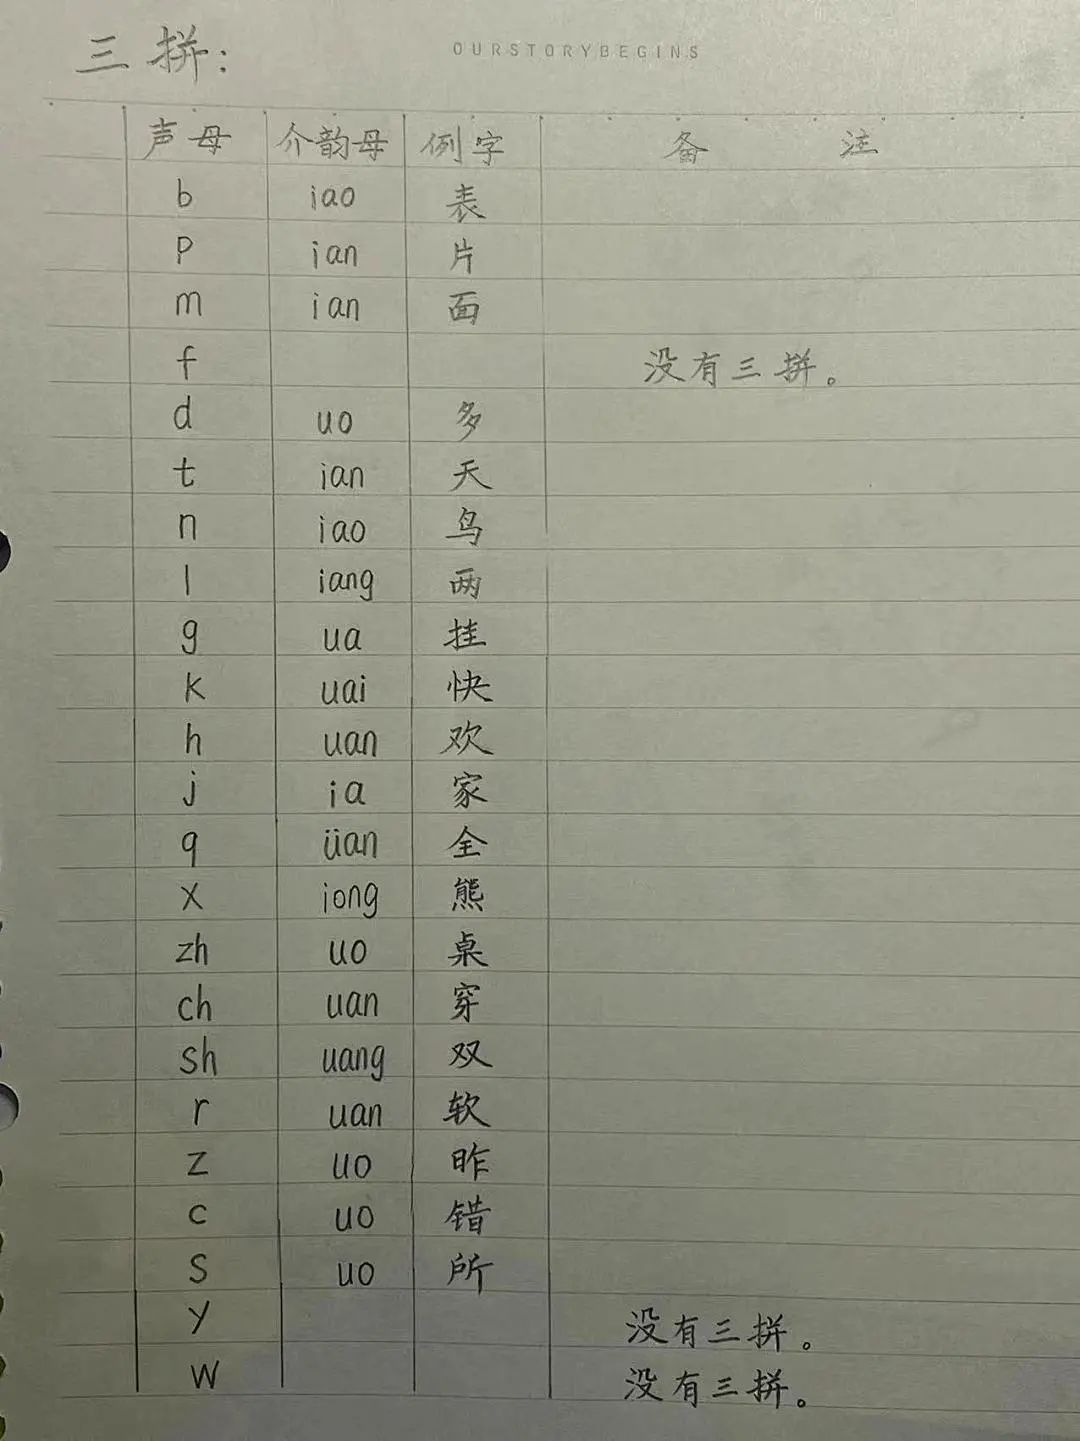 三拼:
OURSTORYBEGINS
声母 介韵母 例字 备注
b iao 表
p ian 片
m ian 面
f 没有三拼。
d uo 多
t ian 天
n iao 鸟
l iang 两
g ua 挂
k uai 快
h uan 欢
j ia 家
q üan 全
x iong 熊
zh uo 桌
ch uan 穿
sh uang 双
r uan 软
z uo 昨
c uo 错
s uo 所
y 没有三拼。
w 没有三拼。